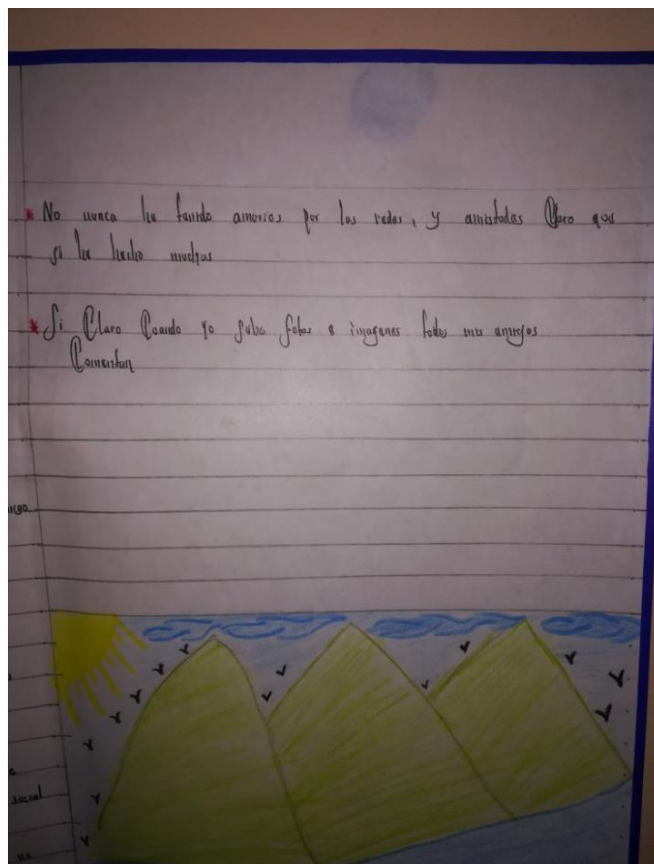 * No nunca he tenido amorios por las redes, y amistades Claro que
si he hecho muchas
* Si Claro Cuando yo subo fotos e imagenes todos mis amigos
Comentan
social